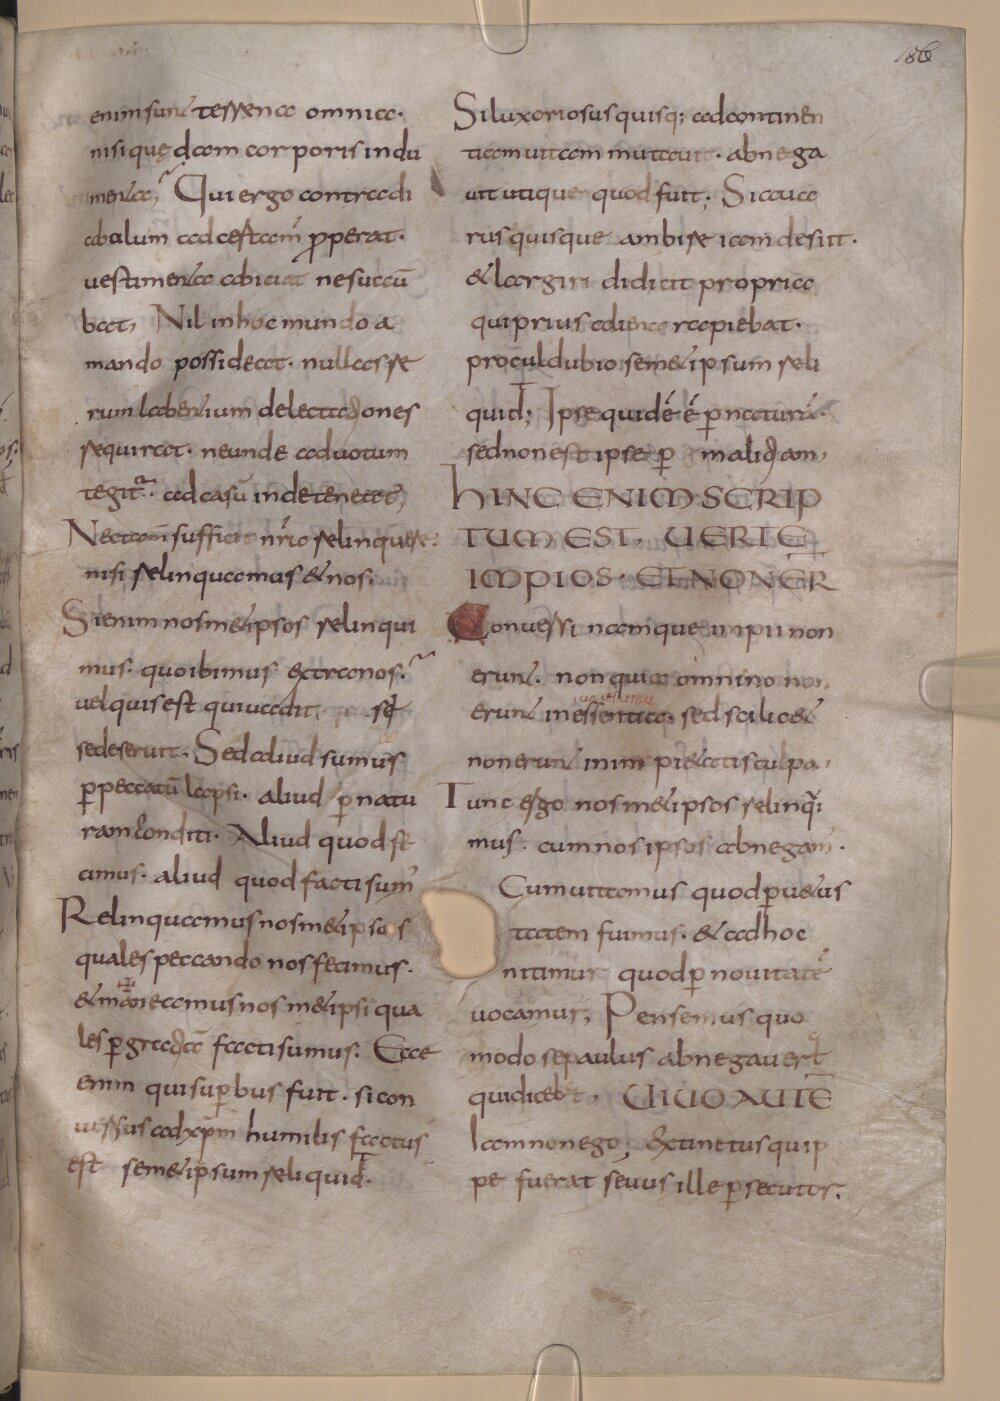 186
enim sunt terrena omnia.
nisi quędam corporis indu
menta; Qui ergo contra di
abulum ad certam̄ ꝓperat.
uestimenta abiciat ne succū
bat, Nil in hoc mundo a
mando possideat. nullas re
rum labentium delectationes
requirat. ne unde ad uotum
tegitur. ad casū inde teneat,
Nec tam̄ sufficit nr̄a relinquere.
nisi relinquamus & nos.
Si enim nosmetipsos relinqui
mus. quo ibimus extra nos.
uel quis est qui uadit, se
se deseruit. Sed aliud sumus
ꝑ peccatū lapsi. aliud ꝑ natu
ram conditi. Aliud quod fe
cimus. aliud quod facti sum̄
Relinquamus nosmetipsos
quales peccando nos fecimus.
& maneamus nosmetipsi qua
les ꝑ gratiā facti sumus. Ecce
enim qui suꝑbus fuit. si con
uersus ad xp̄m humilis factus
est semetipsum reliquid.
Si luxoriosus quisq; ad continen
tiam uitam mutauit. abnega
uit utique quod fuit; Si aua
rus quisque ambire iam desiit.
& largiri didicit propria
qui prius aliena rapiebat.
procul dubio semetipsum reli
quid; Ipse quidē ē ꝑ naturā.
sed non est ipse ꝑ malitiam,
HINC ENIM SCRIP
TUM EST, UERTE
IMPIOS. ET NON ER
Conuersi namque impii non
erunt. non quia omnino non
erunt in essentia. sed scilicet
non erunt in impietatis culpa,
Tunc ergo nosmetipsos relinqui
mus. cum nos ipsos abnegam̄.
Cum uitamus quod ꝑ uetus
tatem fuimus. & ad hoc
nitimur quod ꝑ nouitatē
uocamur, Pensemus quo
modo se paulus abnegauerat
qui dicebat, UIUO AUTĒ
Iam non ego; Extinctus quip
pe fuerat seuus ille ꝑsecutor.